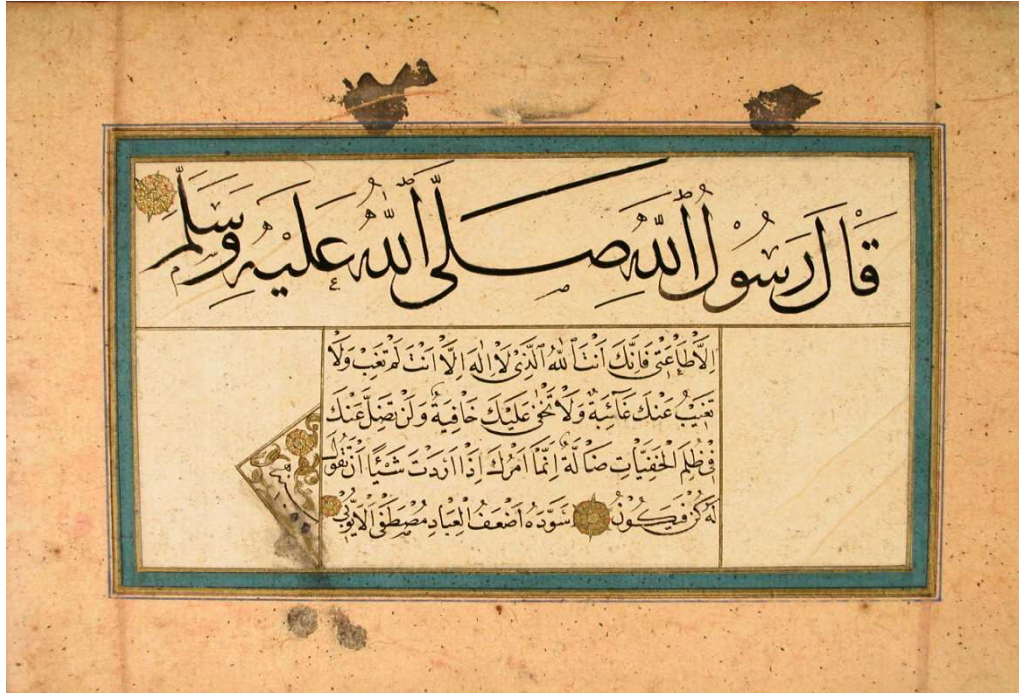 قَالَ رَسُولُ اللّٰهِ صَلَّى اللّٰهُ عَلَيْهِ وَسَلَّمَ
اِلَّا طَاعَتِى فَاِنَّكَ اَنْتَ اللّٰهُ الَّذِى لَا اِلٰهَ اِلَّا اَنْتَ لَمْ تَغِبْ وَلَا
تَغِيبُ عَنْكَ غَائِبَةٌ وَلَا تَخْفٰى عَلَيْكَ خَافِيَةٌ وَلَنْ تَضِلَّ عَنْكَ
فِى ظُلَمِ الْخَفِيَّاتِ ضَالَّةٌ اِنَّمَا اَمْرُكَ اِذَا اَرَدْتَ شَيْئًا اَنْ تَقُولَ
لَهُ كُنْ فَيَكُونُ سَوَّدَهُ اَضْعَفُ الْعِبَادِ مُصْطَفَى الْاَيُّوبِى
سنة